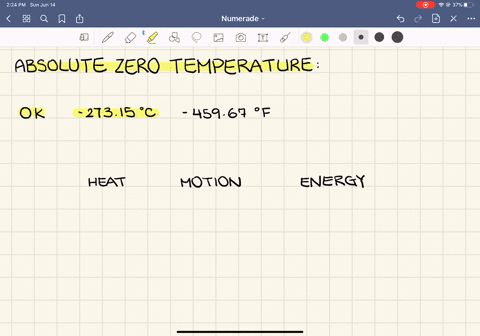 2:24 PM Sun Jun 14
37%
Numerade
ABSOLUTE ZERO TEMPERATURE:
OK -273.15°C -459.67 °F
HEAT MOTION ENERGY